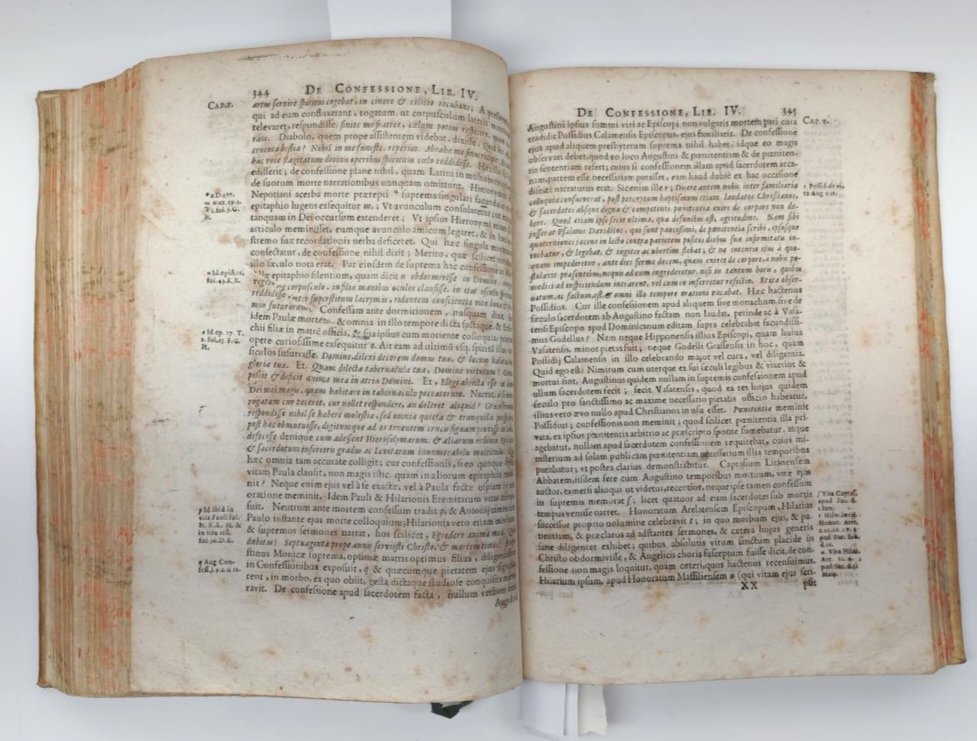 344 DE CONFESSIONE, LIB. IV.
CAP. V.
artem servire spiritui cogebat, in cinere & cilicio recubans; A
qui ad eum confluxerant, rogatum, ut corpusculum lateris
relevaret, respondisse. sinite me fratres, cælum potius respicere, quam
tam. Diabolo, quem prope assistentem videbat, dixisse. Quid
cruenta bestia? Nihil in me funeste reperies. Abrahæ me sinus recipiet.
hac voce flagitatum divinu operibus spiritum cælo reddidisse. Hæc ille
edisserit; de confessione plane nihil, quam Latini in multo
de suorum morte narrationibus nunquam omittunt. Hieronymus
Nepotiani acerba morte præreptit suprema singulari facundia
epitaphio lugens exsequitur m; Vt avunculum consolaretur, ut
tanquam in Dei oratarium extenderet; Vt ipsius Hieronymi
articulo meminisset, eumque avunculo amicum legaret, & in
stremo sua recordationis verba deficeret. Qui hæc singula
consectatur, de confessione nihil dixit; Merito, quæ scilicet
illo sæculo nota erat. Par eiusdem de suprema hac confessione
lle epitaphio silentium, quam dicit n obdormivisse in Domino,
corpusculo, instinc manibus oculos clausisse, in erat osculis spiritum
reddidisse, inter superstitum lacrimas, ridentem conscientia vitæ bonæ
min futurorum. Confessam ante dormitionem, nusquam dixit
idem Paulæ mortem, & omnia in illo tempore dicta factaque, &
chii filiæ in matrē officia, & ipsius cum moriente colloquia,
opere curiosissime exsequitur o. Aït eam ad ultimū vsq. spiritū
siculos susurrasse. Domine, dilexi decorem domus tuæ, & locum habitationis
gloriæ tuæ. Et. Quàm dilecta tabernacula tua, Domine virtutum!
piscit & deficit anima mea in atria Domini. Et, Elegi abjecta esse in
Dei mei magis, quam habitare in tabernaculis peccatorum. Narrat,
rogatam cur taceret, cur nollet respondere, an doleret aliquid? Græco
respondisse nihil se habere molestiæ, sed omnia quieta & tranquilla
post hæc obmutuisse, digitumque ad os tenentem crucu signum pinxisse
defecisse denique cum adessent Hierosolymarum, & aliarum urbium Episcopi
& sacerdotum inferioris gradus ac Levitarum innumerabilu multitudo.
hæc omnia tam accurate colligit; cur confessionis, si eo quoque
vitam Paula clausit, non magis istic, quam in aliorum epitaphiis
nit? Neque enim ejus vel à se exactæ, vel à Paula factæ uspiam in
oratione meminit. Idem Pauli & Hilarionis Eremitarum vitas
suit. Neutrum ante mortem confessum tradit p; & Antonij tamen
Paulo instante ejus morte colloquium, Hilarionis vero etiam
& supremos sermones narrat, hos scilicet, Egredere anima mea. Quid
dubitas? Septuaginta prope annis servisti Christo, & mortem times?
stinus Monicæ supremas, optimæ matris optimus filius, diligenter
in Confessionibus exposuit, q & quæcumque pietatem ejus
rent, in morbo, ex quo obiit, gesta dictaque studiose conquisita
ravit. De confessione apud sacerdotem facta, nullum verbum
m Id epistre.
fol. 43. K. X.
o Id. ep. 27. T.
1. fol. 65. F. G.
H.
p Id ibid in
vita Pauli fol.
in vita
fol. 90. D. E.
q Aug Con-
fess. l. 9. c. 9. 11.
DE CONFESSIONE, LIB. IV. 345
CAP. V.
Augustini ipsius summi viri ac Episcopi non vulgaris mortem pari cura
tradidit Possidius Calamensis Episcopus, ejus familiaris. De confessione
ejus apud aliquem presbyterum suprema nihil habet, idque eo magis
observari debet, quod eo loco Augustini & pœnitentiam & de pœniten-
tia sententiam refert; cuius si confessionem illam apud sacerdotem acca-
nam, partem esse necessariam putasset, eam haud dubie ex hac occasione
disertè narraturus erat. Sic enim ille r; Dicere autem nobis inter familiaria
colloquia consueverat, post perceptum baptismum etiam laudatos Christianos,
& sacerdotes absque digna & competenti pœnitentia exire de corpore non de-
bere. Quod etiam ipse fecit ultima, qua defunctus est, ægritudine. Nam sibi
jusserat Psalmos Davidicos, qui sunt paucissimi, de pœnitentia scribi, ipsosque
quaterniones jacens in lecto contra parietem positos diebus suæ infirmitatis in-
tuebatur, & legebat, & jugiter ac ubertim flebat; & ne intentio ejus à quo-
quam impediretur, ante dies ferme decem, quam exiret de corpore, à nobis po-
stulavit præsentibus, ne quis ad eum ingrederetur, nisi in tantum horis, quibus
medici ad inspiciendum intrarent, vel cum ei inferretur refectio. Et ita obser-
vatum, ac factum est, & omni illo tempore orationi vacabat. Hæc hactenus
Possidius. Cur ille confessionem apud aliquem sive monachum, sive de
sæculo sacerdotem ab Augustino factam non laudat, perinde ac à Vasa-
tensi Episcopo apud Dominicanum editam supra celebrabat facundissi-
mus Godellus? Nam neque Hipponensis illius Episcopi, quam huius
Vasitensis, minor pietas fuit; neque Godelli Grassensis in hoc, quam
Possidij Calamensis in illo celebrando major vel cura, vel diligentia.
Quid ego est? Nimirum cum uterque ex sui sæculi legibus & vixerint &
mortui sint, Augustinus quidem nullam in supremis confessionem apud
ullum sacerdotem fecit; fecit Vasatensis, quod ea res hujus quidem
sæculo pro sanctissimo ac maxime necessario pietatis officio habeatur,
illius vero ævo nullo apud Christianos in usu esset. Pœnitentiæ meminit
Possidius; confessionis non meminit; quod scilicet pœnitentia illa pri-
vata, ex ipsius pœnitentis arbitrio ac præscripto sponte sumebatur, atque
agebatur, nullam apud sacerdotem confessionem requirebat, cuius mi-
nisterium ad solam publicam pœnitentiam necessarium illis temporibus
putabatur; vt postea clarius demonstrabitur. Caprasium Lirinensem
Abbatem, iisdem fere cum Augustino temporibus mortuum, vitæ ejus
auctor, tametsi alioqui ut videtur, recentior, neque ipse tamen confessum
in supremis memorat s, licet quatuor ad eum sacerdotes sub mortis
tempus venisse narret. Honoratum Arelatensem Episcopum, Hilarius
successor proprio volumine celebravit t; in quo morbum ejus, & pa-
tientiam, & præclaros ad adstantes sermones, & cætera hujus generis
sane diligenter exhibet; quibus absolutis vitam sanctum placide in
Christo obdormivisse, & Angelicis choris susceptum fuisse dicit, de con-
fessione non magis loquitur, quam cæteri, quos hactenus recensuimus.
Hilarium ipsum, apud Honoratum Massiliensem u (qui vitam ejus scri-
XX psit
r Possid. de vi-
ta Aug c. 31.
s Vita Capras.
apud Sur. d.
t Hilar. in vid.
Honor. Arel.
u Vita Hilar.